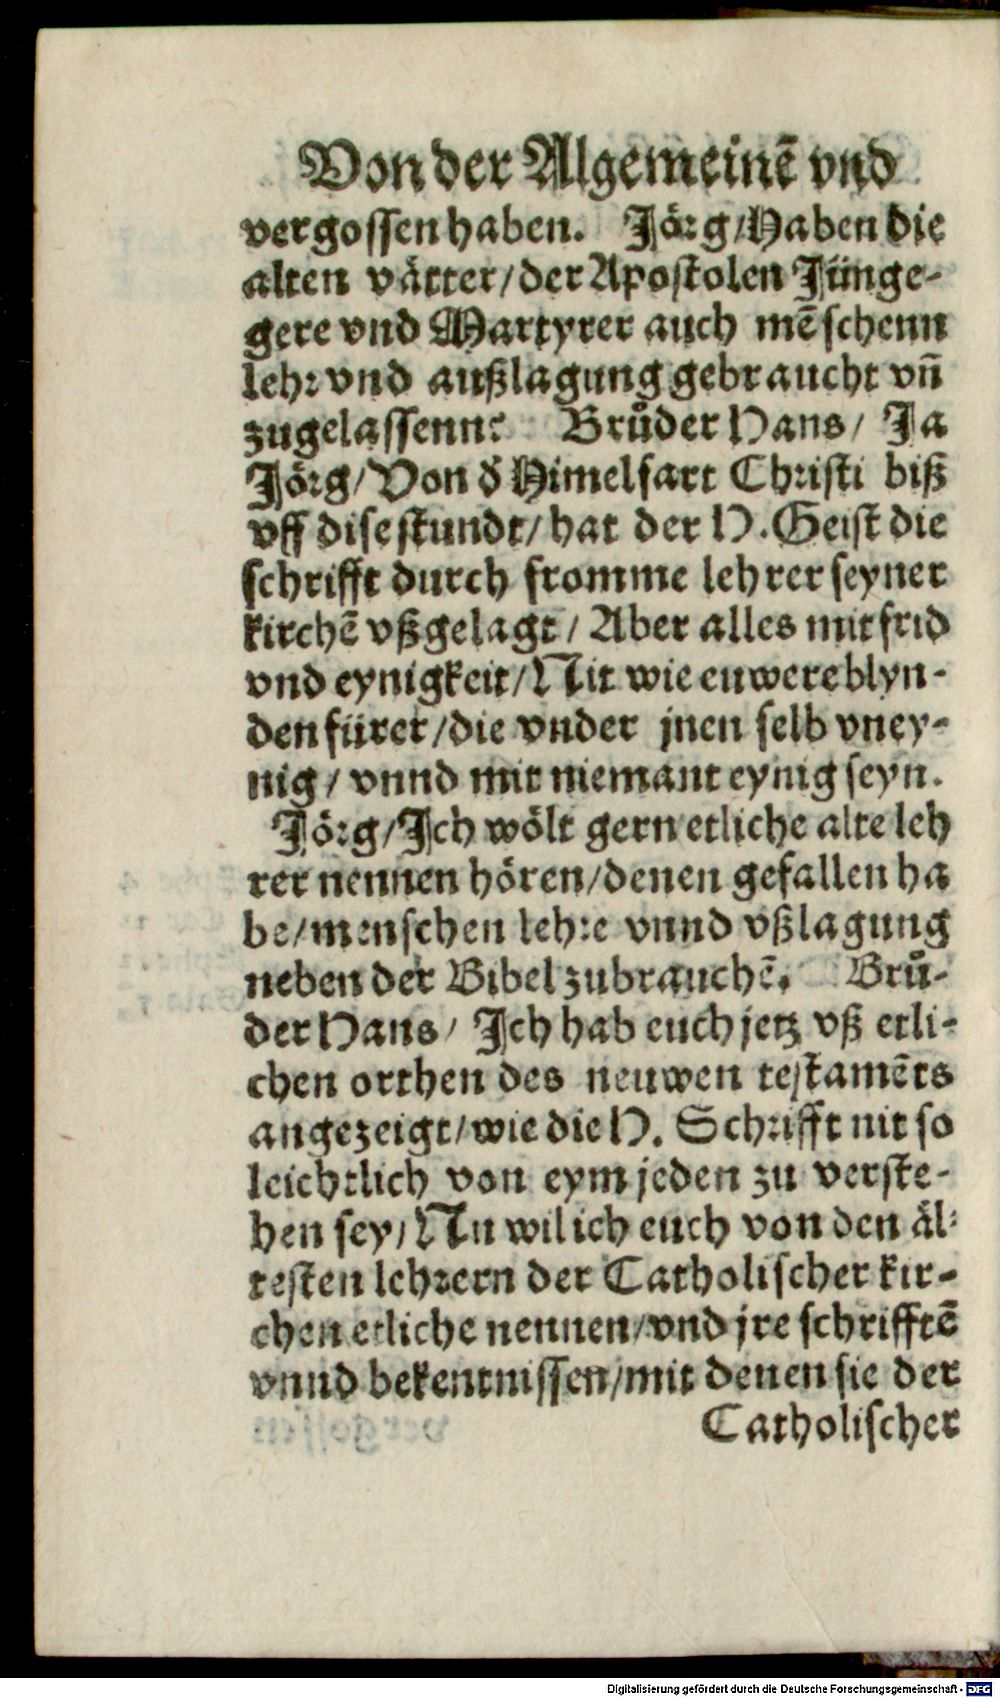 Von der Algemeinē vnd
vergossen haben. Jörg/Haben die
alten våtter/der Apostolen Jünge-
gere vnd Martyrer auch mēschenn
lehr vnd außlagung gebraucht vn̄
zugelassenn? Brůder Hans/ Ja
Jörg/Von d̄ Himelfart Christi biß
vff dise stundt/hat der H. Geist die
schrifft durch fromme lehrer seyner
kirchē vßgelagt/ Aber alles mit frid
vnd eynigkeit/Nit wie euwere blyn-
den fürer/die vnder jnen selb vney-
nig/ vnnd mit niemant eynig seyn.
Jörg/Ich wölt gern etliche alte leh
rer nennen hören/denen gefallen ha
be/menschen lehre vnnd vßlagung
neben der Bibel zubrauchē. Brů-
der Hans/ Ich hab euch jetz vß etli-
chen orthen des neuwen testamēts
angezeigt/wie die H. Schrifft nit so
leichtlich von eym jeden zu verste-
hen sey/Nu wil ich euch von den äl-
testen lehrern der Catholischer kir-
chen etliche nennen/vnd jre schrifftē
vnnd bekentnissen/mit denen sie der
Catholischer
Digitalisierung gefördert durch die Deutsche Forschungsgemeinschaft - DFG